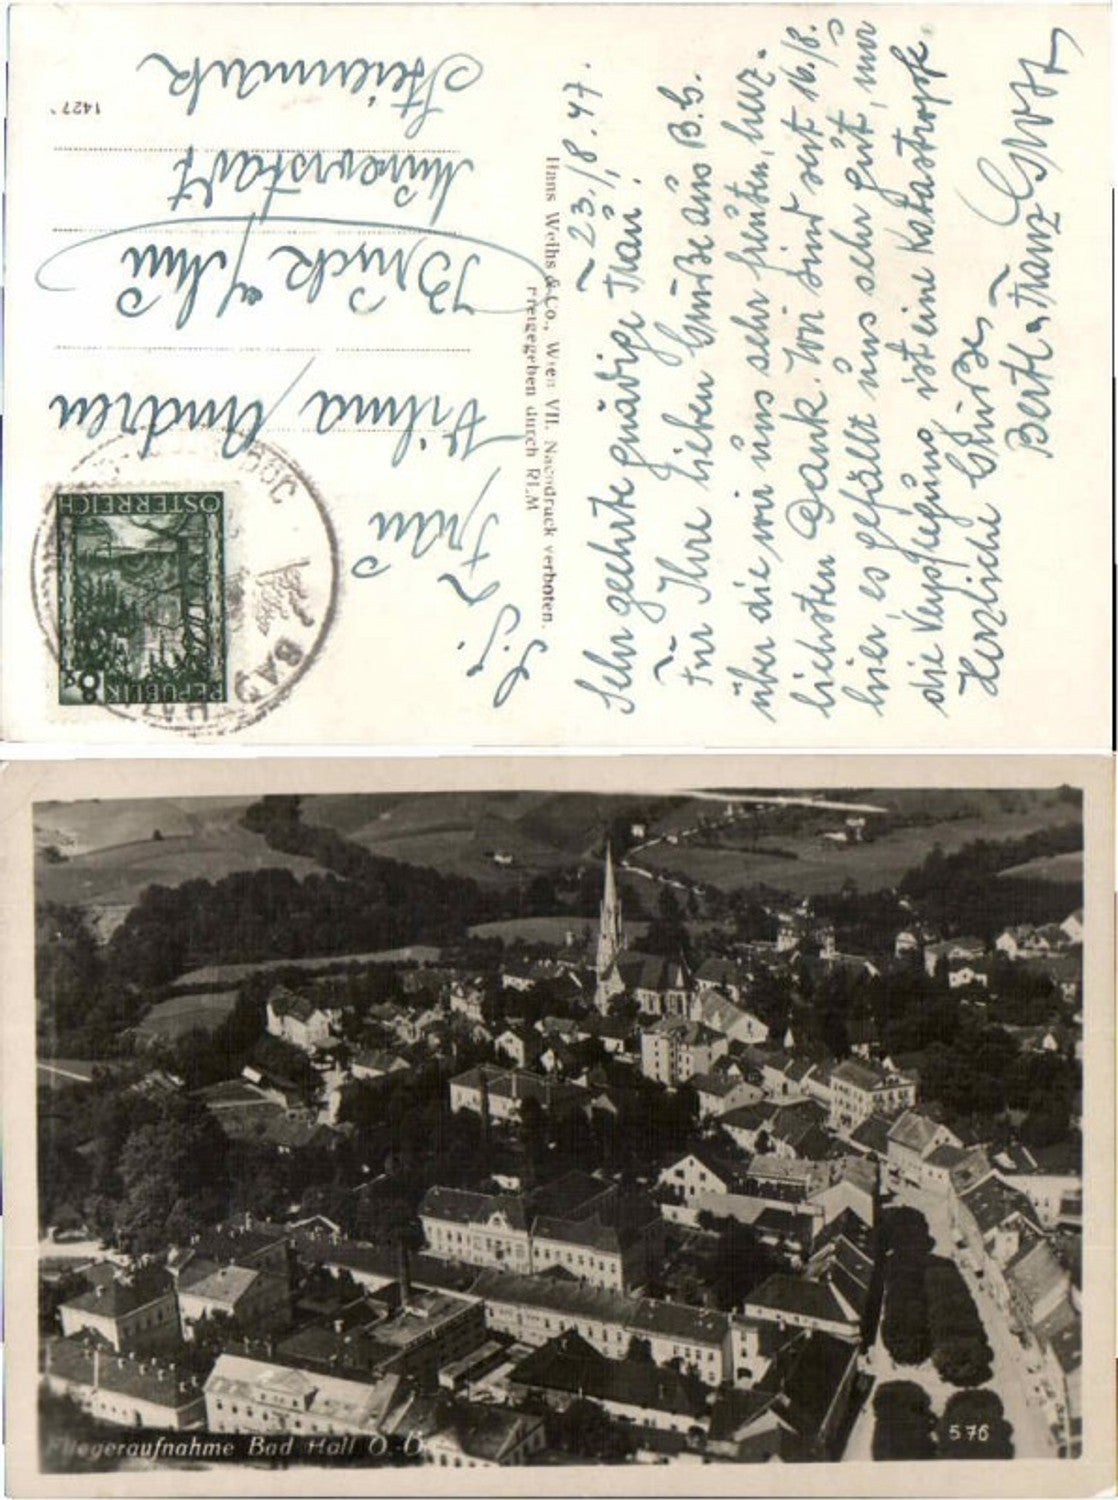 ~ 23./8.47.
Sehr geehrte gnädige Frau!
Für Ihre lieben Grüße aus B.G.
über die wir uns sehr freuten, herz-
lichsten Dank. Wir sind seit 16./8.
hier, es gefällt uns sehr gut, nur
die Verpflegung ist eine Katastrophe.
Herzliche Grüße
Bertl u Franz
Hans Weihs & Co., Wien VII. Nachdruck verboten.
Freigegeben durch RLM
Frau
Vilma Andreu
Bruck a/Mur
Minoristadt
Steiermark
1427
REPUBLIK
8
ÖSTERREICH
BAD HALL
Fliegeraufnahme Bad Hall O.-Ö.
576